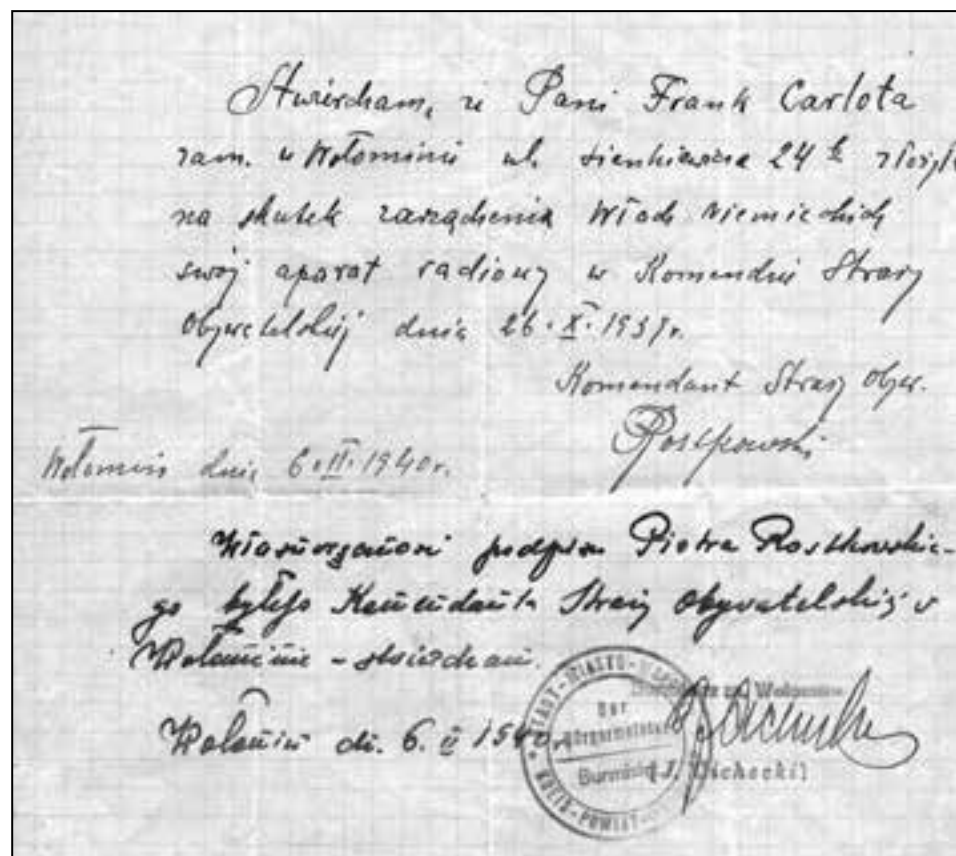 Stwierdzam, że Pani Frank Carlota
zam. w Wołominie ul. Sienkiewicza 24 złożyła
na skutek zarządzenia Władz niemieckich
swój aparat radiowy w Komendzie Straży
Obywatelskiej dnia 26.X.1939r.
Komendant Straży Obyw.
PRostkowski
Wołomin dnia 6.II.1940r.
Własnoręczność podpisu Piotra Rostkowskie-
go byłego Komendanta Straży Obywatelskiej w
Wołominie - stwierdzam.
Wołomin dn. 6.II 1940r.
STADT - MIASTO
Der
Bürgermeister
Burmistrz
KREIS - POWIAT
Wolomin
(J. Cichecki)